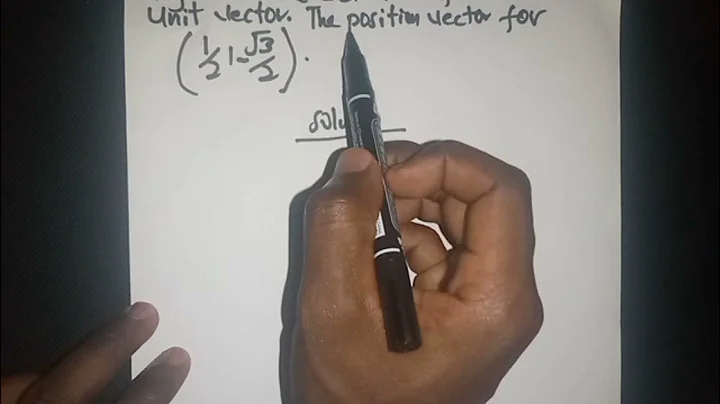 unit vector. The position vector for
(1/2, -√3/2).